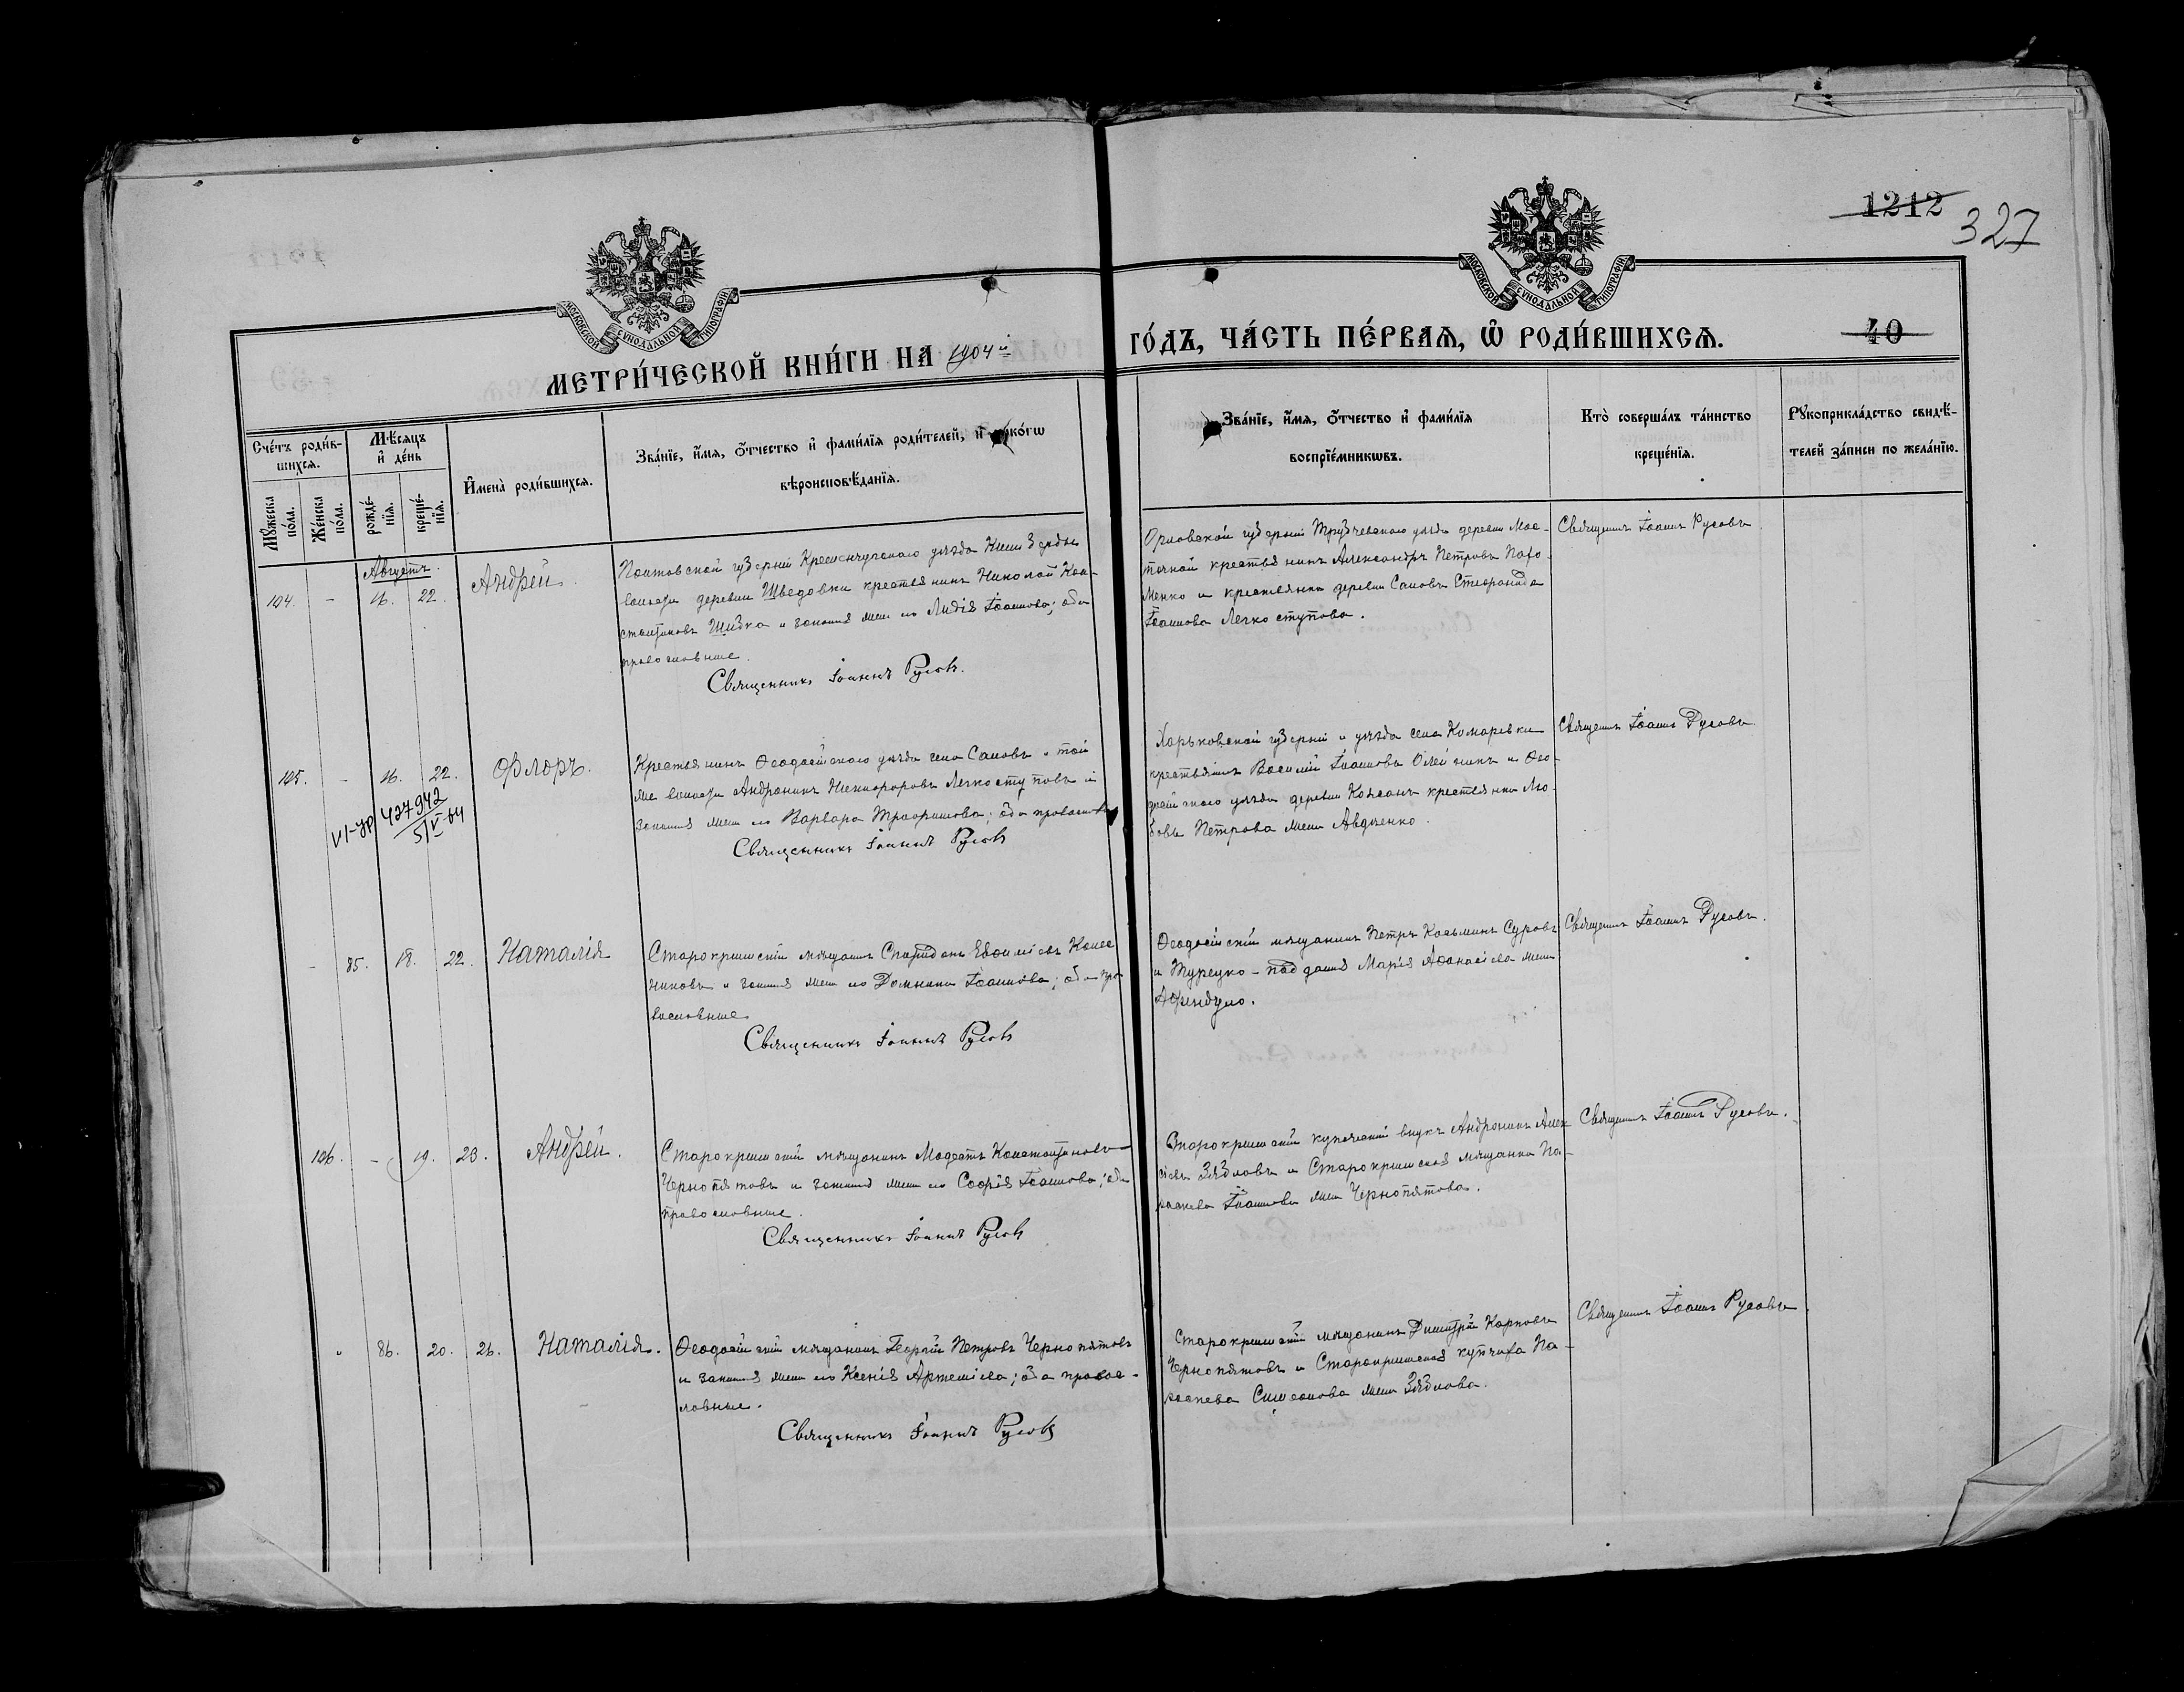 1212
327
МОСКОВСКОЙ СѴНОДАЛЬНОЙ ТИПОГРАФІИ
МОСКОВСКОЙ СѴНОДАЛЬНОЙ ТИПОГРАФІИ
МЕТРИ́ЧЕСКОЙ КНИ́ГИ НА 1904й
ГО́ДЪ, ЧА́СТЬ ПЕ́РВАѦ, Ѡ҆ РОДИ́ВШИХСѦ.
40
Сче́тъ роди́в-
шихсѧ.
Мꙋ́жеска по́ла.
Же́нска по́ла.
Мѣ́сѧцъ
и҆ де́нь
рожде́-
нїѧ.
креще́-
нїѧ.
И҆мена̀ роди́вшихсѧ.
Зва́нїе, и҆́мѧ, о҆́тчество и҆ фами́лїѧ роди́телей, и҆ како́гѡ
вѣроисповѣ́данїѧ.
Зва́нїе, и҆́мѧ, о҆́тчество и҆ фами́лїѧ
воспрїе́мникѡвъ.
Кто̀ соверша́лъ та́инство
креще́нїѧ.
Рꙋкоприкла́дство свидѣ́-
телей за́писи по жела́нїю.
Августъ.
104. - 16. 22. Андрей.
Полтовской губерніи Кременчугскаго уѣзда
волости деревни Шведовки крестьянинъ Николай Кон-
стантиновъ Шибка и законная жена его Лидія Іоаннова; оба
православные.
Священникъ Іоаннъ Русовъ.
Орловской губерніи Трубчевскаго уѣзда деревни Мос-
точной крестьянинъ Александръ Петровъ Пахо-
менко и крестьянка деревни Саловъ Стефанида
Іоаннова Легкоступова.
Священникъ Іоаннъ Русовъ
105. - 16. 22. Флоръ.
VI-ЗР 437942
5/V-64
Крестьянинъ Ѳеодосійскаго уѣзда села Саловъ и той
же волости Андроникъ Никифоровъ Легкоступовъ и
законная жена его Варвара Трофимова; оба православ
Священникъ Іоаннъ Русовъ
Харьковской губерніи и уѣзда села Комаревки
крестьянинъ Василій Іоанновъ Олейникъ и Ѳео-
досійскаго уѣзда деревни крестьянка Лю-
бовь Петрова жена Авдѣенко.
Священникъ Іоаннъ Русовъ.
- 85. 18. 22. Наталія
Старокрымскій мѣщанинъ Спиридонъ Евѳиміевъ Колес
никовъ и законная жена его Домника Іоаннова; оба пра
вославные
Священникъ Іоаннъ Русовъ
Ѳеодосійскій мѣщанинъ Петръ Косьминъ Суровъ
и Турецко-подданая Марія Аѳанасіева жена
Афендуло.
Священникъ Іоаннъ Русовъ.
106. - 19. 23. Андрей.
Старокрымскій мѣщанинъ Модестъ Константиновъ
Чернопятовъ и законная жена его Софія Іоаннова; оба
православные.
Священникъ Іоаннъ Русовъ
Старокрымскій купеческій внукъ Андроникъ Алек
сіевъ Зябловъ и Старокрымская мѣщанка Па-
раскева Іоаннова жена Чернопятова.
Священникъ Іоаннъ Русовъ.
„ 86. 20. 26. Наталія.
Ѳеодосійскій мѣщанинъ Георгій Петровъ Чернопятовъ
и законная жена его Ксенія Артеміева; оба правос-
лавные.
Священникъ Іоаннъ Русовъ
Старокрымскій мѣщанинъ Димитрій Карповъ
Чернопятовъ и Старокрымская купчиха Па-
раскева Симеонова жена Зяблова.
Священникъ Іоаннъ Русовъ.